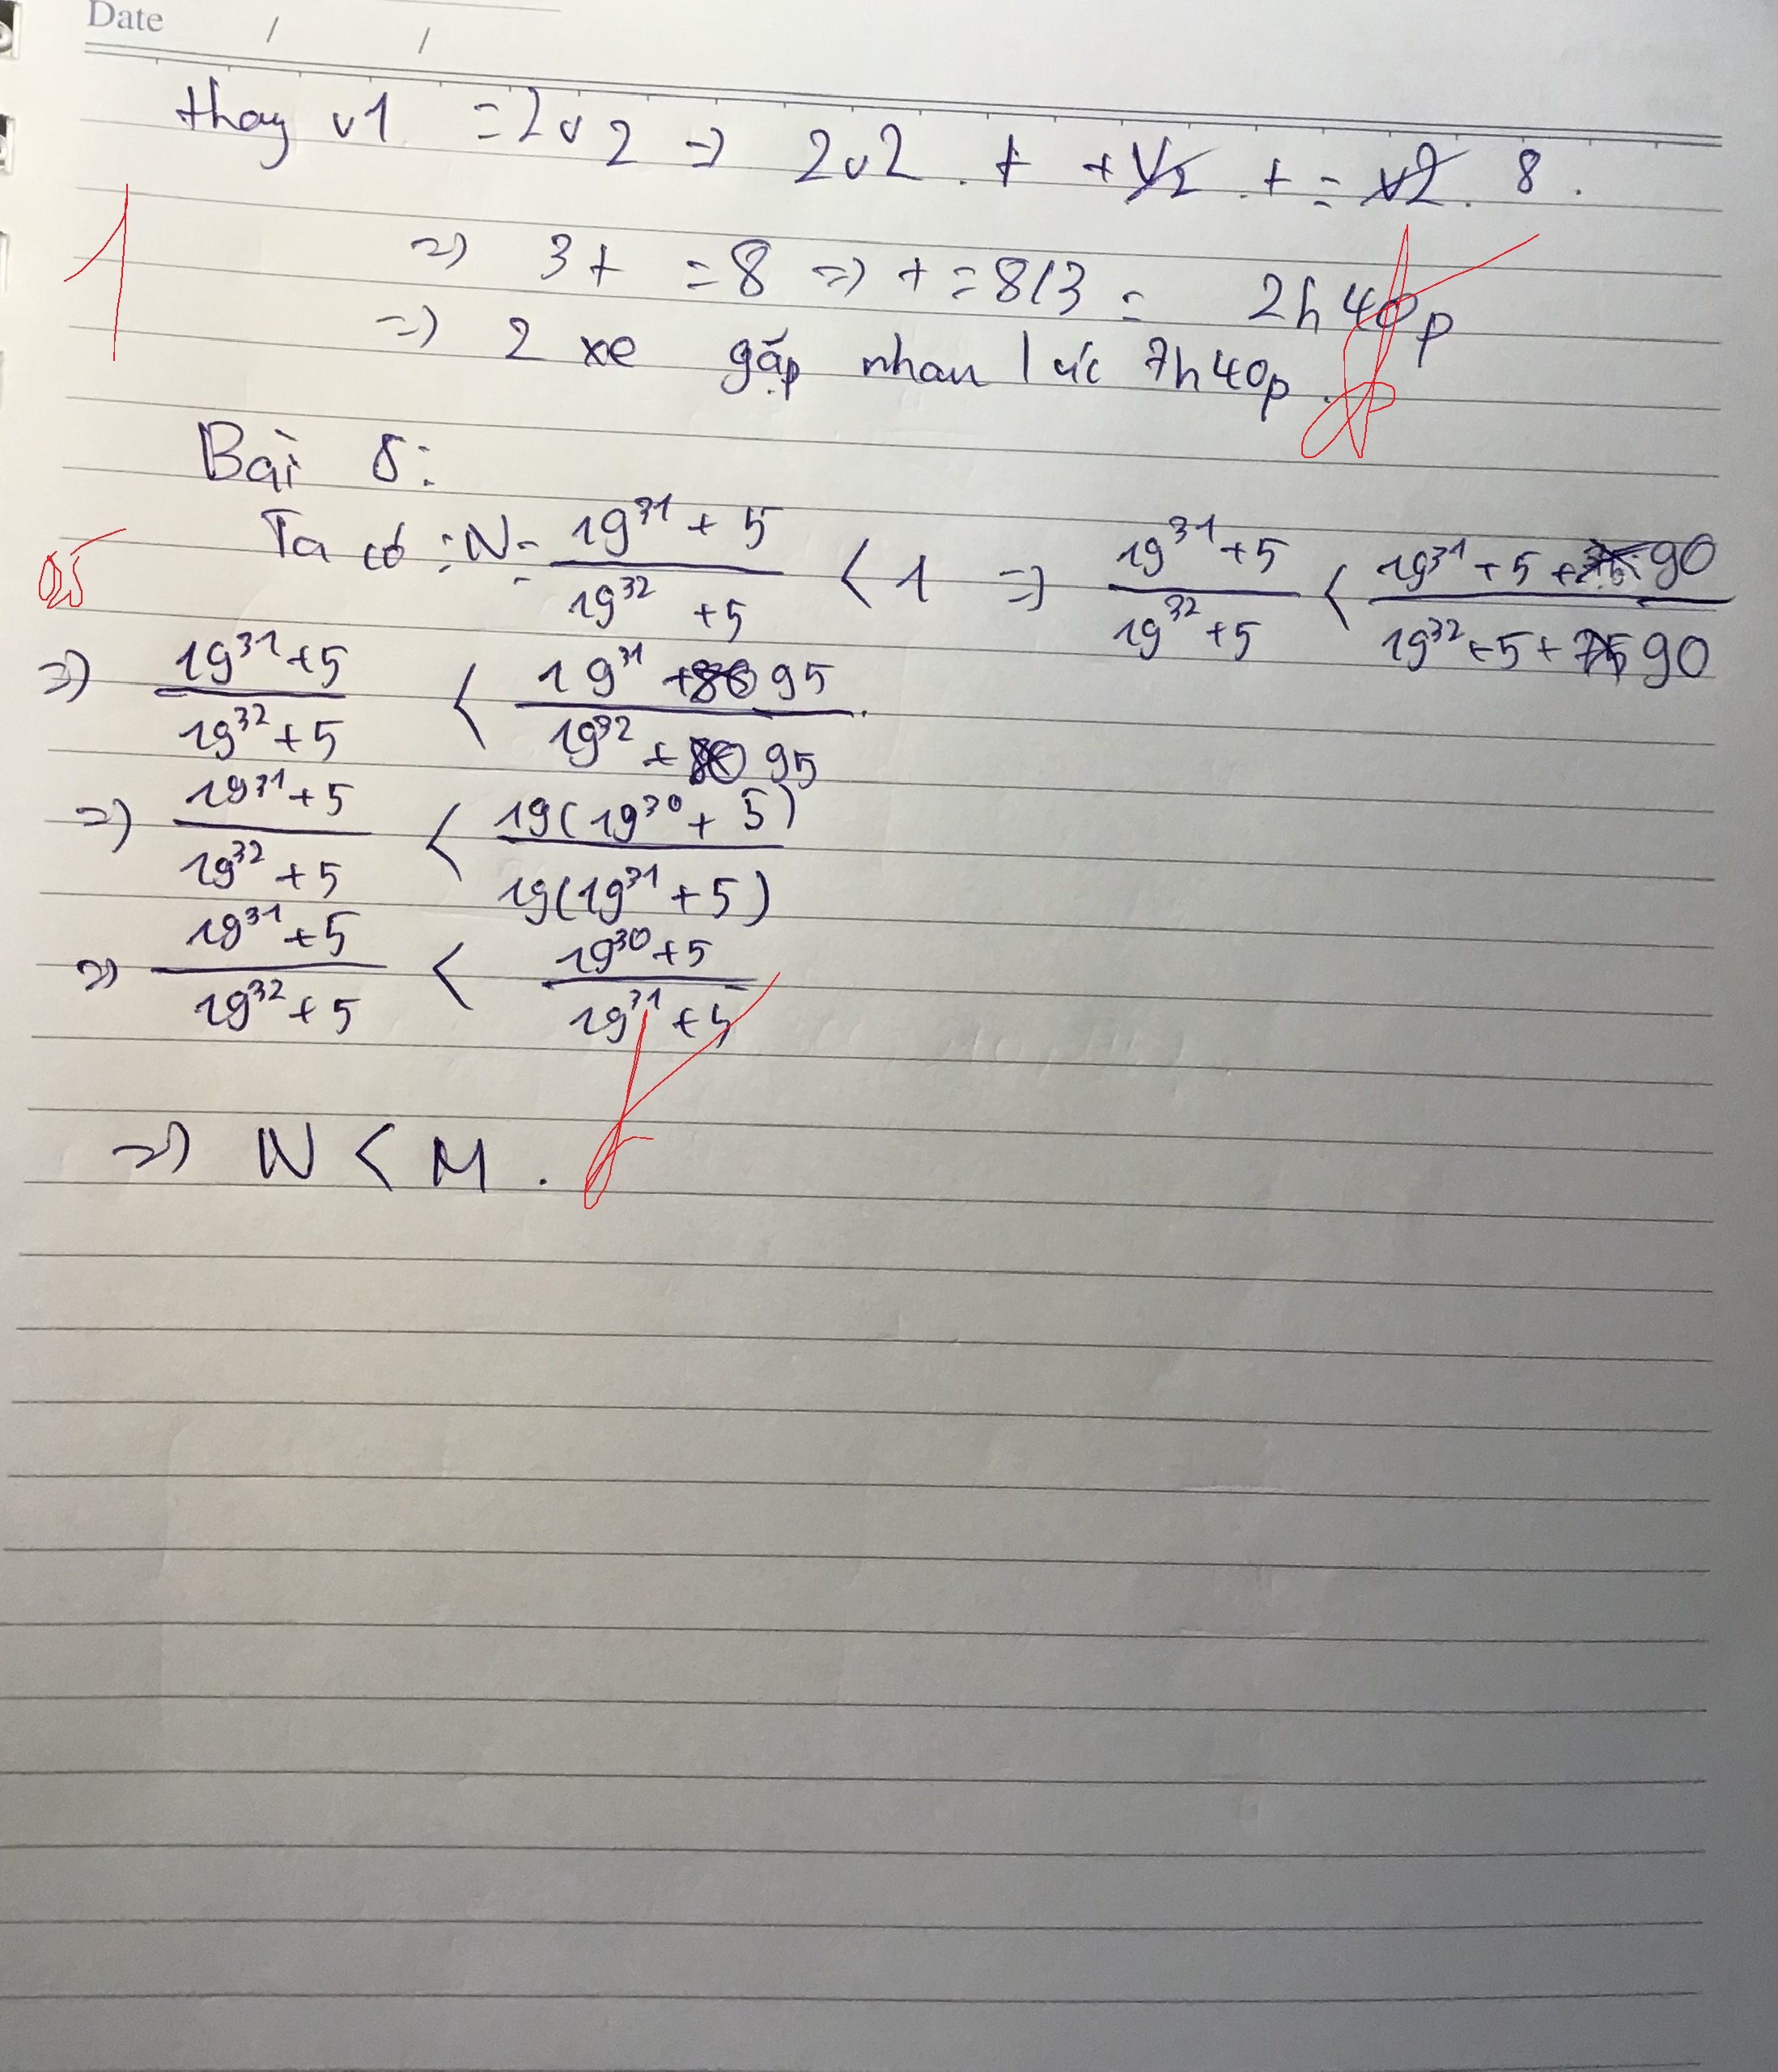 Date / /
thay v1 = 2v2 => 2v2 . t + v2 . t = v2 . 8 .
1
=> 3t = 8 => t = 8/3 = 2h40p
=> 2 xe gặp nhau lúc 7h40p .
Bài 5:
0,5
Ta có : N = (19^31 + 5)/(19^32 + 5) < 1 => (19^31 + 5)/(19^32 + 5) < (19^31 + 5 + 90)/(19^32 + 5 + 90)
=> (19^31 + 5)/(19^32 + 5) < (19^31 + 95)/(19^32 + 95) .
=> (19^31 + 5)/(19^32 + 5) < 19(19^30 + 5)/19(19^31 + 5)
=> (19^31 + 5)/(19^32 + 5) < (19^30 + 5)/(19^31 + 5)
=> N < M .